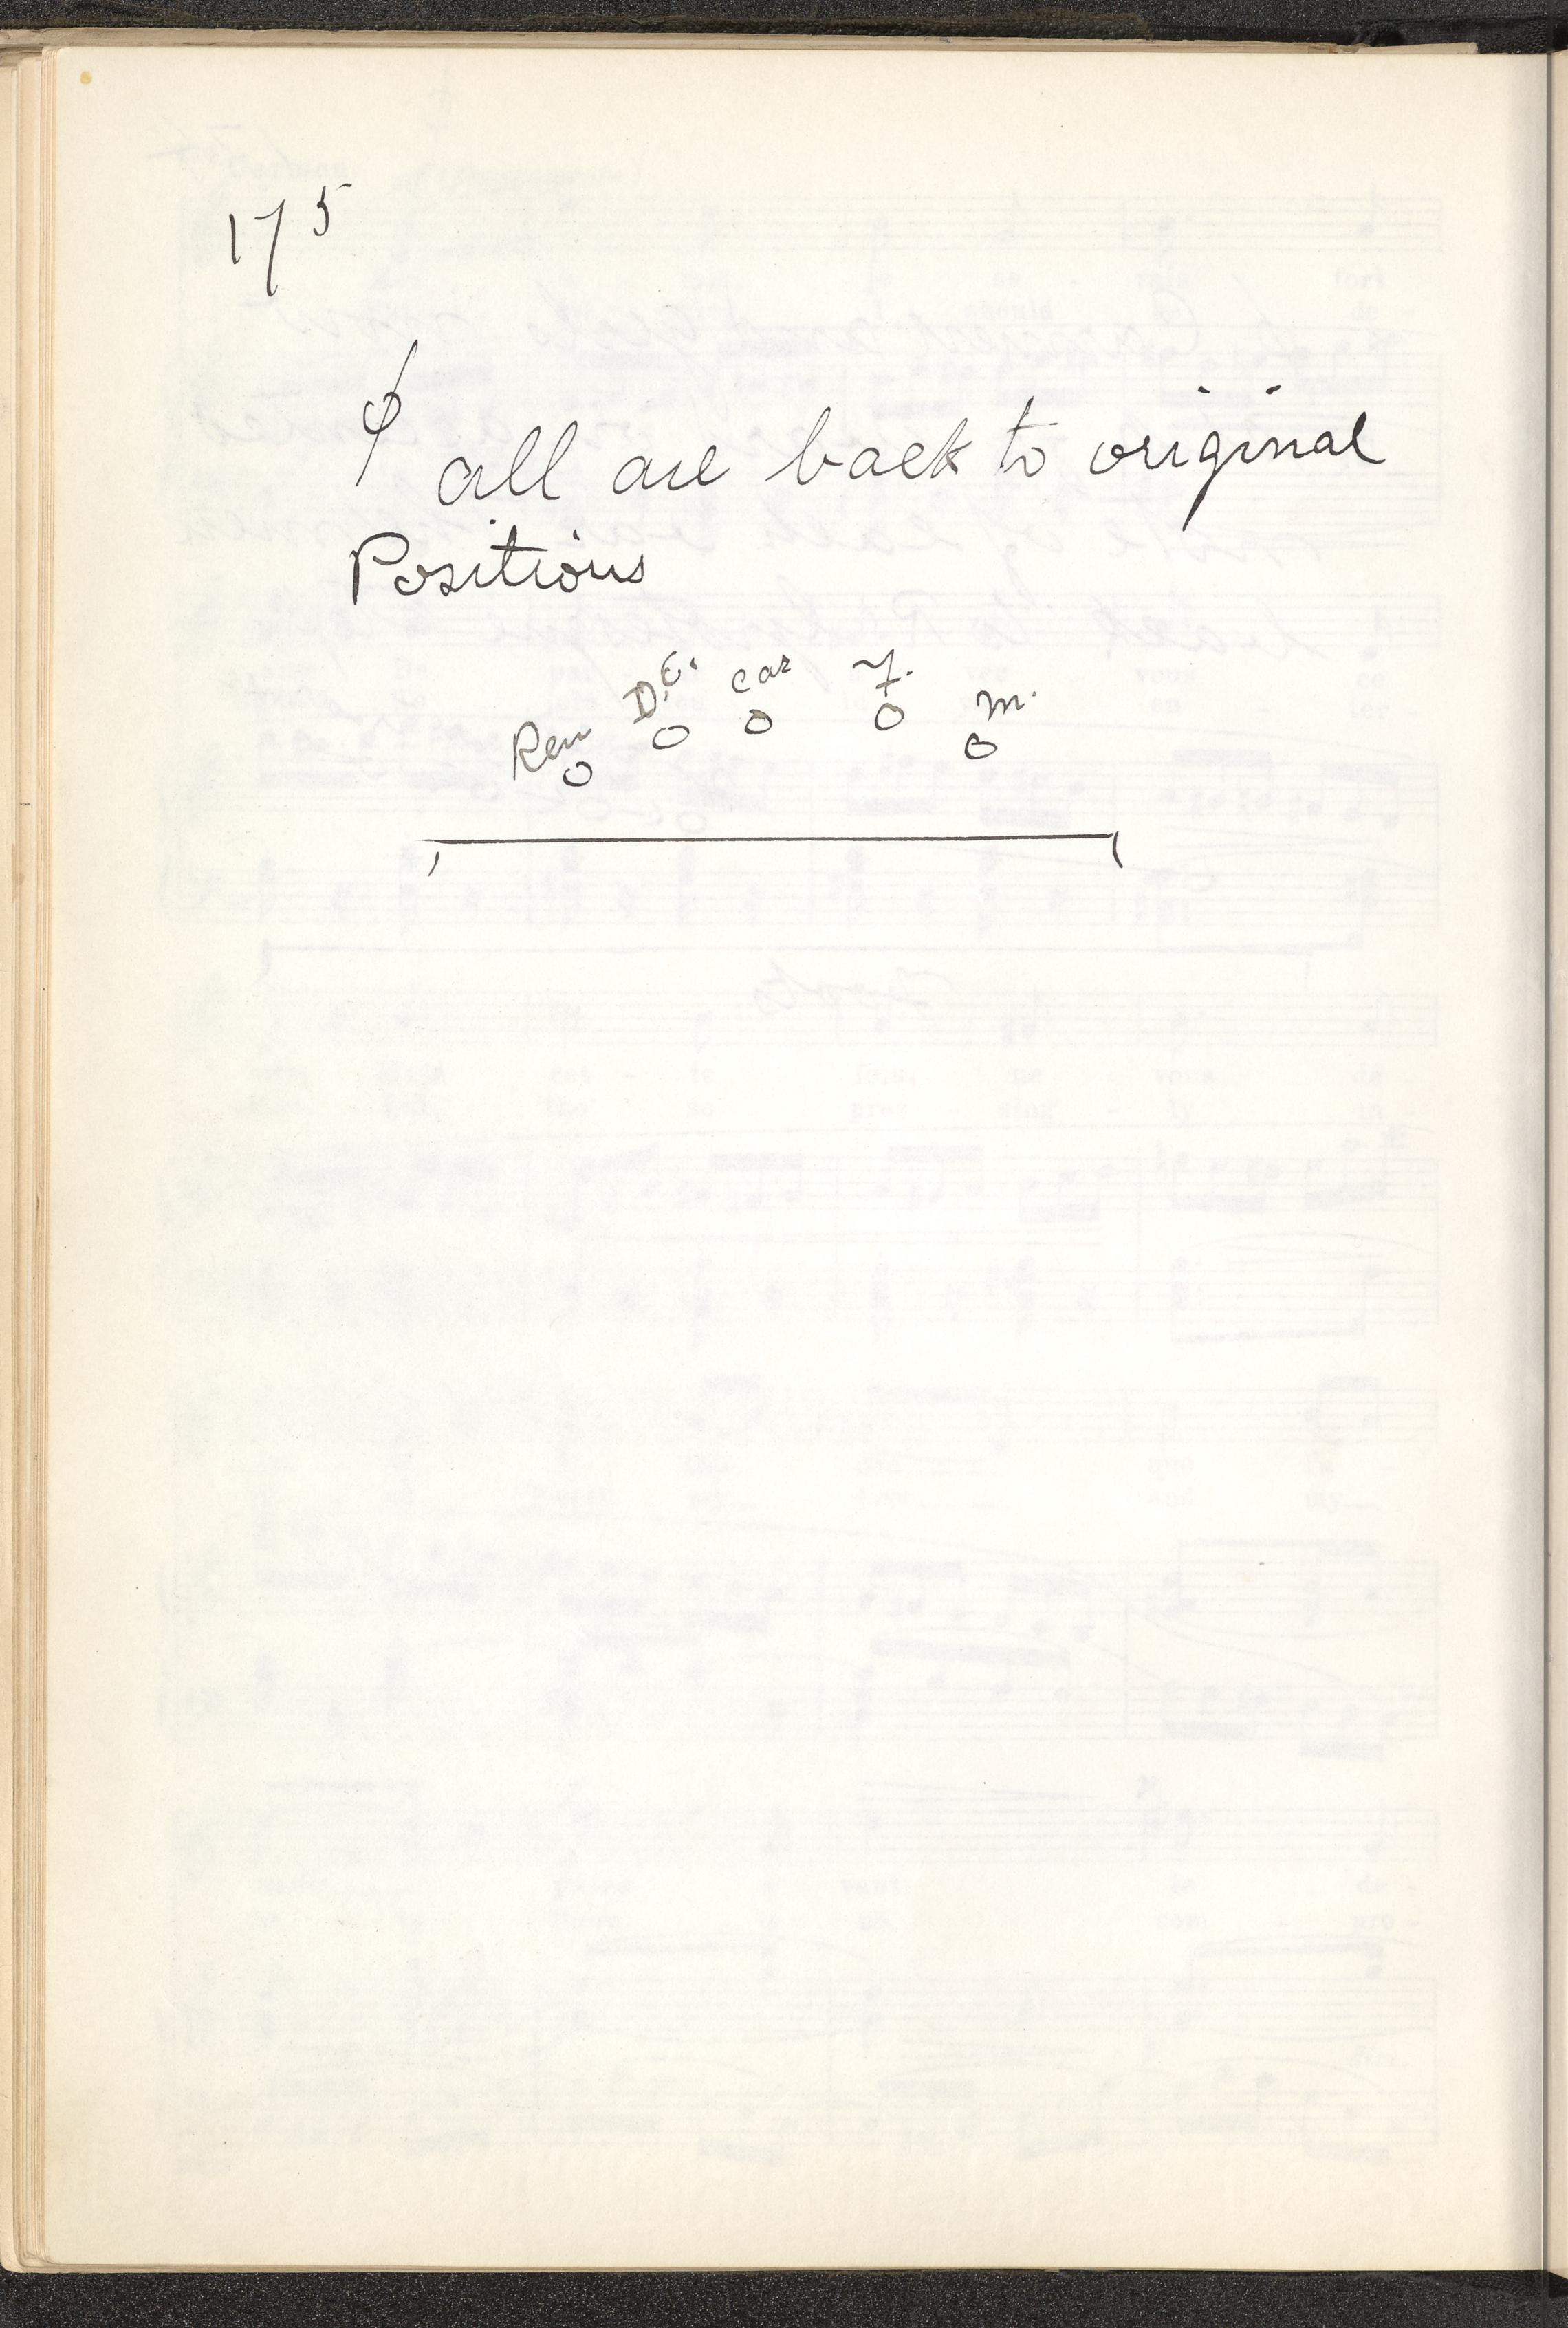 175
ϕ all are back to original
Positions
Rem D.C. Car F. M.